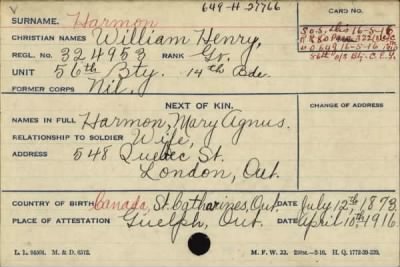 649-H-27766
SURNAME. Harmon
CARD NO.
CHRISTIAN NAMES William Henry,
REGL. NO. 324953 RANK Gr.
UNIT 56th Bty. 14th Bde.
FORMER CORPS Nil,
S.O.S. 16-5-16
56th O/S Bty. C.E.F.
NEXT OF KIN.
CHANGE OF ADDRESS
NAMES IN FULL Harmon, Mary Agnus.
RELATIONSHIP TO SOLDIER Wife,
ADDRESS 548 Quebec St.
London, Ont.
COUNTRY OF BIRTH Canada, St. Catharines, Ont. DATE July 12th 1873
PLACE OF ATTESTATION Guelph, Ont. DATE April 10th, 1916.
L. L. M. & D. 6572. M. F. W. 22. H. Q. 1772-39-339.